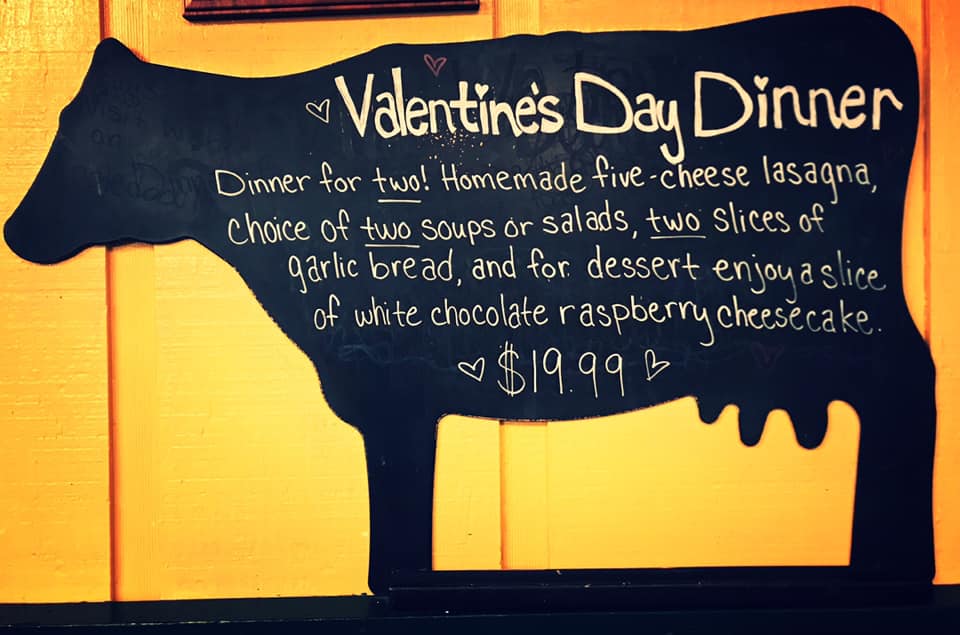 Valentine's Day Dinner
Dinner for two! Homemade five-cheese lasagna,
choice of two soups or salads, two slices of
garlic bread, and for dessert enjoy a slice
of white chocolate raspberry cheesecake.
$19.99